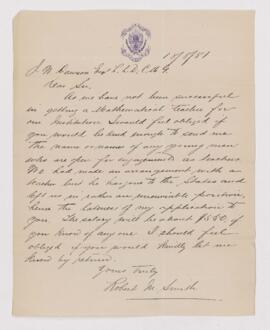 J. W. Dawson Esq L.L.D, C.M.G.
Dear Sir,
As we have not been successful
in getting a Mathematical teacher for
our Institution I would feel obliged if
you would be kind enough to send me
the name or names of any young men
who are open for engagements as teachers.
We had made an arrangement with a
teacher but he has gone to the States and
left us in rather an unenviable position,
hence the lateness of my application to
you. The salary will be about $550, if
you know of any one I should feel
obliged if you would kindly let me
know by return.
Yours Truly
Robert M. Smith